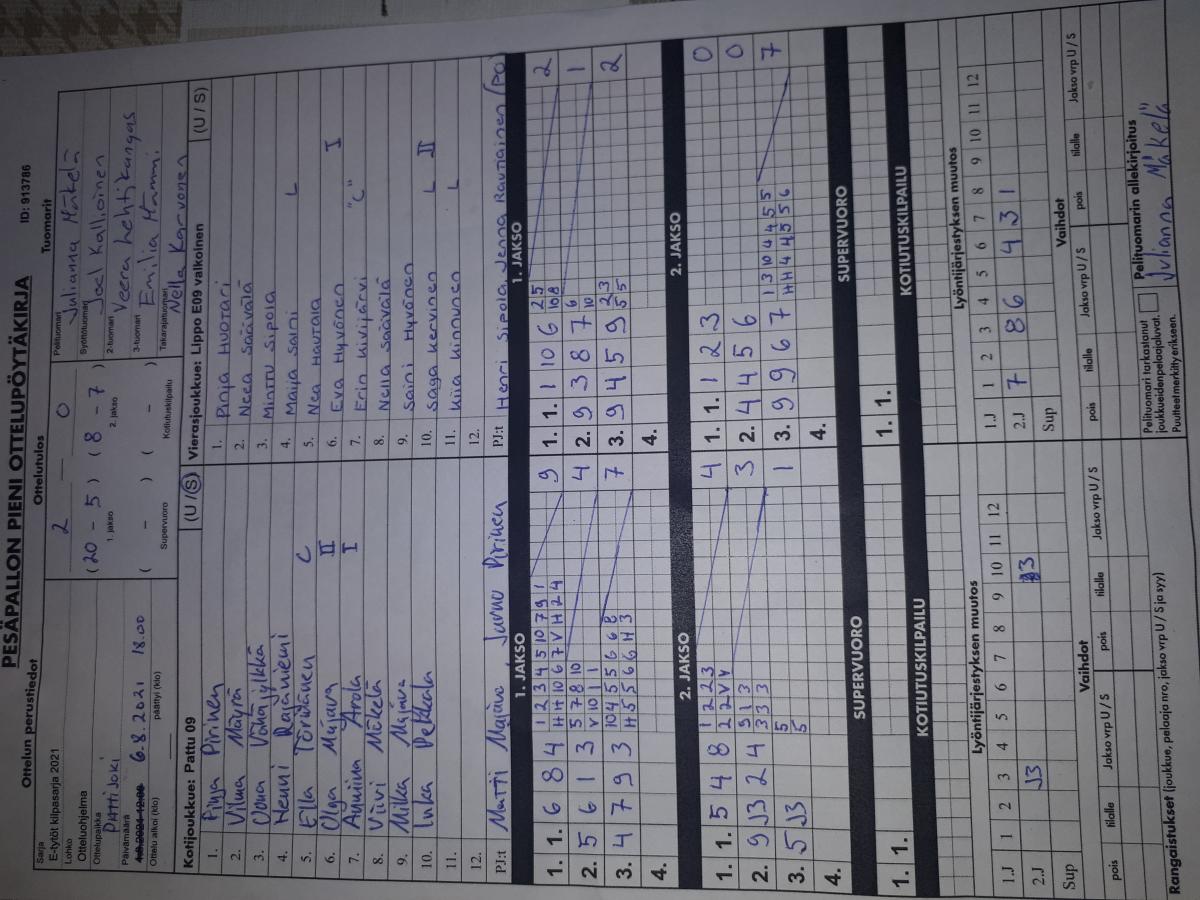 PESÄPALLON PIENI OTTELUPÖYTÄKIRJA
ID: 913786
Ottelun perustiedot
Ottelutulos
Tuomarit
Sarja
E-tytöt kilpasarja 2021
Lohko
Otteluohjelma
Ottelupaikka
PATTIJOKI
Päivämäärä
6.8.2021 18.00
Ottelu alkoi (klo)
päättyi (klo)
2 0
(20 - 5) (8 - 7)
1. jakso
2. jakso
( - ) ( - )
Supervuoro
Kotiutuskilpailu
Pelituomari
Julianna Mäkelä
Syöttötuomari
Joel Kallioinen
2-tuomari
Veera Lehtikangas
3-tuomari
Emilia Hammi
Takarajatuomari
Nella Karvonen
Kotijoukkue: Pattu 09
(U / S)
1. Pinja Pirinen
2. Vilma Määttä
3. Oona Vähäjylkkä
4. Henni Rajaniemi
5. Ella Törmänen C
6. Olga Majava II
7. Anniina Arola I
8. Viivi Mökelä
9. Milka Majava
10. Inka Pekkala
11.
12.
PJ:t Matti Majava, Jarno Pirinen
Vierasjoukkue: Lippo E09 valkoinen
(U / S)
1. Pinja Huotari
2. Neea Säävälä
3. Minttu Sipola
4. Maija Saini L
5. Nea Hautala
6. Eva Hyvönen I
7. Erin Kivijärvi "C"
8. Nella Säävälä
9. Saini Hyvönen
10. Saga Kervinen L II
11. Kiia Kinnunen L
12.
PJ:t Henri Sipola, Jenna Rautiainen (PO)
1. JAKSO
1. 1. 6 8 4 1 2 3 4 5 10 7 9 1 9
H H 10 6 7 V H 2 4
2. 5 6 1 3 5 7 8 10 4
V 10 1 1
3. 4 7 9 3 10 4 5 5 6 6 8 7
H 5 5 6 6 H 3
4.
1. JAKSO
1. 1. 1 10 6 2 5 2
10 8
2. 9 3 8 7 6 1
10
3. 9 4 5 9 2 3 2
5 5
4.
2. JAKSO
1. 1. 5 4 8 1 2 2 3 4
2 2 V V
2. 9 J3 2 4 9 1 3 3
3 3 3
3. 5 J3 5 1
5
4.
2. JAKSO
1. 1. 1 2 3 0
2. 4 4 5 6 0
3. 9 9 6 7 1 3 10 4 4 5 5 7
H H 4 4 5 5 6
4.
SUPERVUORO
1. 1.
SUPERVUORO
1. 1.
KOTIUTUSKILPAILU
1. 1.
KOTIUTUSKILPAILU
1. 1.
Lyöntijärjestyksen muutos
1 2 3 4 5 6 7 8 9 10 11 12
1.J
2.J J3
Sup
Lyöntijärjestyksen muutos
1 2 3 4 5 6 7 8 9 10 11 12
1.J
2.J 7 8 6 4 3 1
Sup
Vaihdot
pois tilalle Jakso vrp U / S pois tilalle Jakso vrp U / S
Vaihdot
pois tilalle Jakso vrp U / S pois tilalle Jakso vrp U / S
Rangaistukset (joukkue, pelaaja nro, jakso vrp U / S ja syy)
Pelituomari tarkastanut
joukkueiden pelaajaluvat.
Puutteet merkitty erikseen.
Pelituomarin allekirjoitus
Julianna Mäkelä